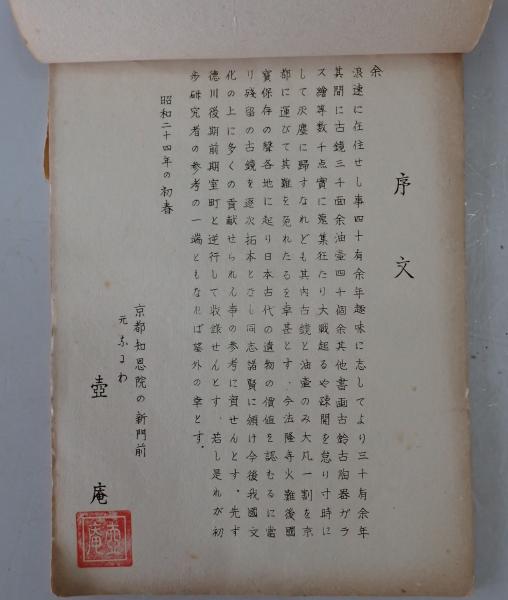 序文
余
浪速に在住せし事四十有余年趣味に志してより三十有余年
其間に古鏡三千面余油壷四十個余其他書画古鈴古陶器ガラ
ス繪等数千点實に蒐集狂たり大戦起るや疎開を怠り寸時に
して灰塵に歸すなれども其内古鏡と油壷のみ大凡一割を京
都に運びて其難を免れたるを幸甚とす、今法隆寺火難後國
寳保存の聲各地に起り日本古代の遺物の價値を認むるに當
り残留の古鏡を逐次拓本となし同志諸賢に頒け今後我國文
化の上に多くの貢献せられん事の参考に資せんとす。先ず
徳川後期前期室町と逆行して收錄せんとす、若し是れが初
歩研究者の参考の一端ともなれば望外の幸とす。
昭和二十四年の初春
京都知恩院の新門前
元なにわ
壺庵
壺庵